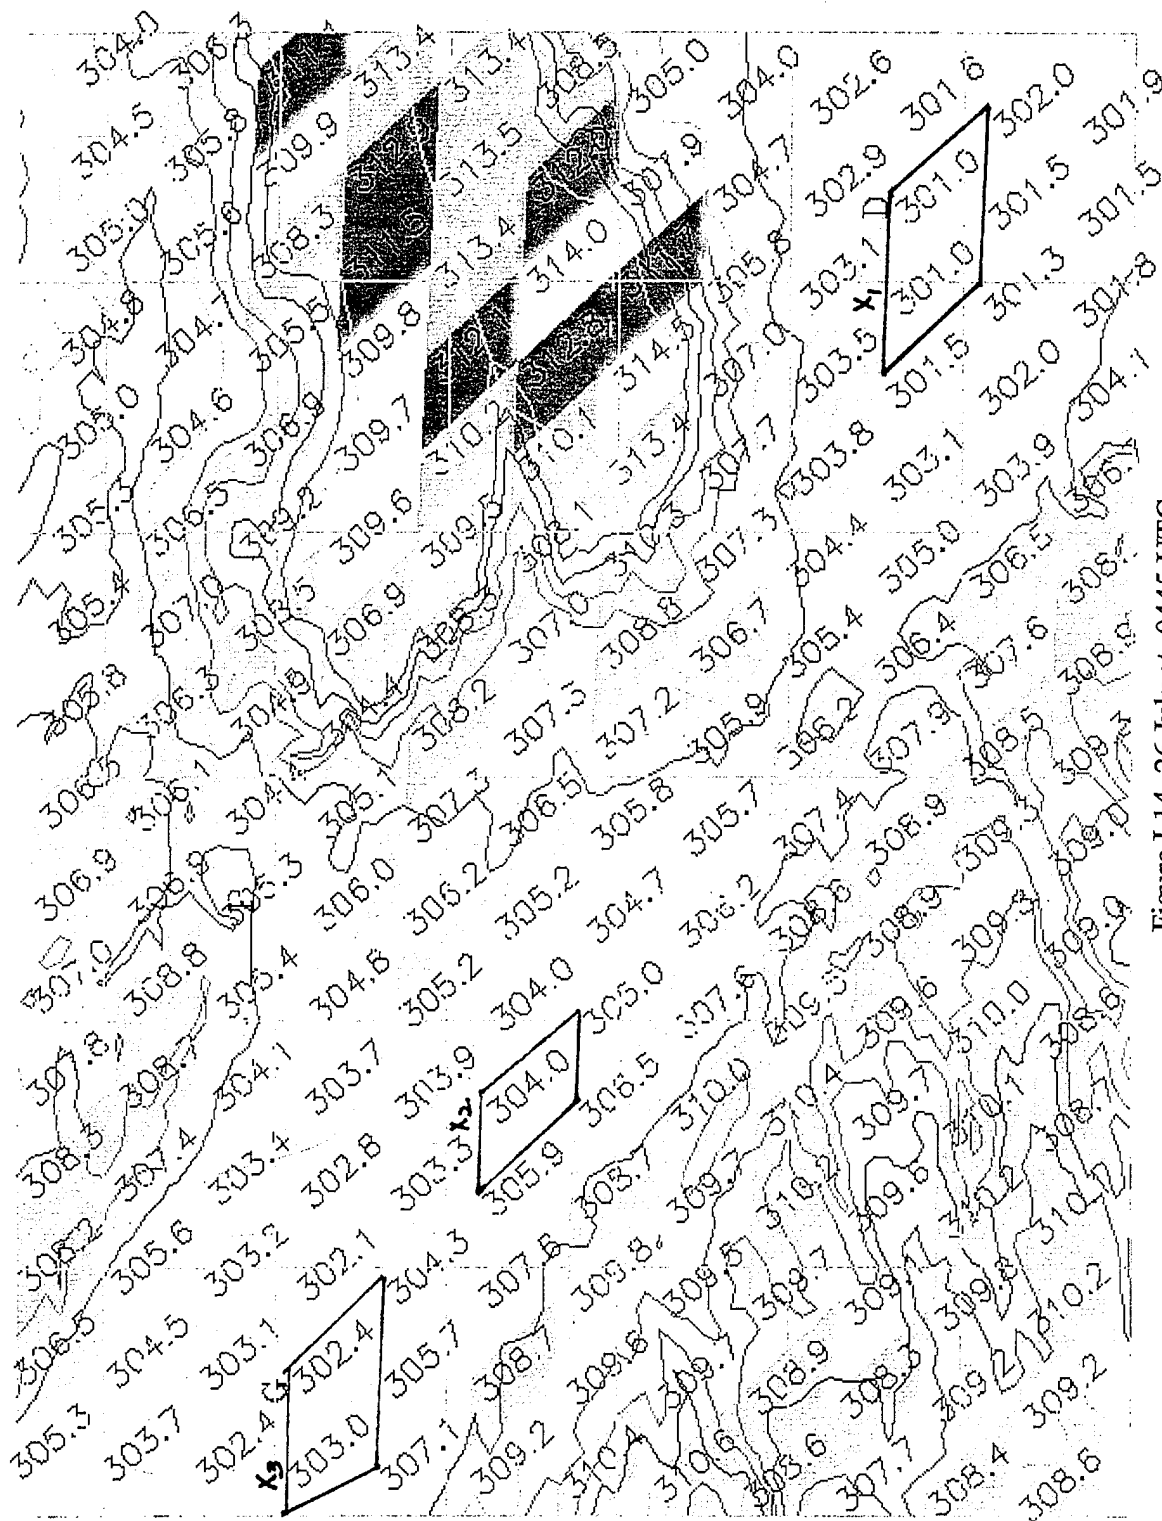 304.0 306.3 313.4 313.4 308.5 305.0 304.0 302.6 301.6 302.0 301.9
304.5 305.8 309.9 313.5 307.9 304.7 302.9 D 301.0 301.5 301.5
305.0 305.6 308.3 313.4 314.0 305.8 303.1 X1 301.0 301.3 301.8
304.8 304.7 305.5 309.8 312.8 314.5 307.0 303.5 301.5 302.0 304.1
305.0 304.6 306.9 309.7 310.2 310.1 313.4 307.7 303.8 303.1 303.9
305.3 306.3 309.2 309.6 309.5 308.1 310.3 307.3 304.4 305.0 306.5
305.4 307.0 306.9 307.0 308.8 306.7 305.4 306.4 307.6 308.9
305.8 306.3 304.9 304.4 308.2 307.3 307.2 305.9 306.2 307.9 308.5
306.5 306.1 305.1 307.3 306.5 305.8 305.7 307.4 308.9 309.3 309.0
306.9 306.9 305.3 306.0 306.2 305.2 304.7 306.2 308.6 308.9 309.3 309.0
307.0 308.8 305.4 304.6 305.2 304.0 305.0 307.6 309.6 310.0 308.6
307.8 304.1 303.7 303.9 X2 304.0 306.5 310.0 310.4 309.7 310.1 308.7
308.3 307.4 303.4 302.8 303.3 305.9 308.7 309.7 310.2 309.6 310.2 310.2
308.2 305.6 303.2 302.1 304.3 307.6 309.8 309.5 309.7 309.7 310.2
306.5 304.5 303.1 G 302.4 305.7 308.7 309.6 309.7 308.9 308.3 309.2 309.2
305.3 303.7 302.4 X3 303.0 307.1 309.2 310.4 310.6 308.6 307.7 308.4 308.6